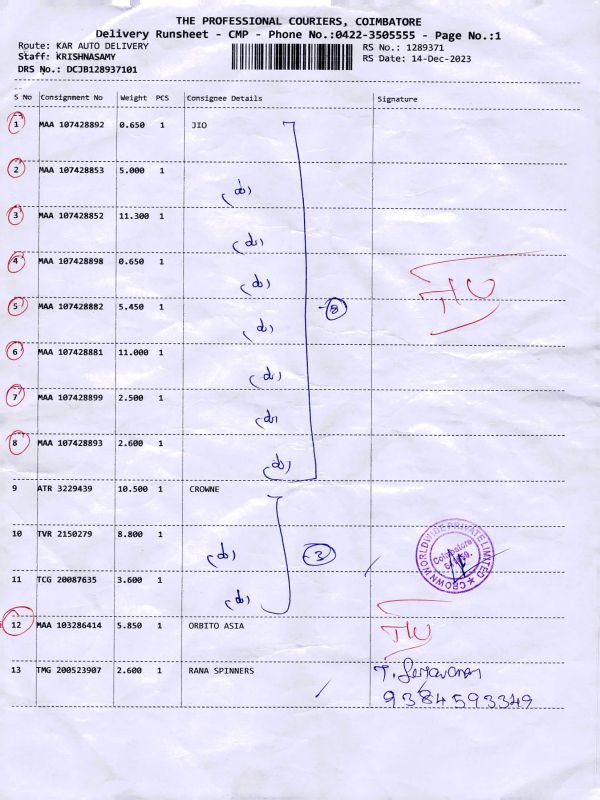 THE PROFESSIONAL COURIERS, COIMBATORE
Delivery Runsheet - CMP - Phone No.:0422-3505555 - Page No.:1
Route: KAR AUTO DELIVERY RS No.: 1289371
Staff: KRISHNASAMY RS Date: 14-Dec-2023
DRS No.: DCJB128937101
S No Consignment No Weight PCS Consignee Details Signature
1 MAA 107428892 0.650 1 JIO
2 MAA 107428853 5.000 1
3 MAA 107428852 11.300 1
4 MAA 107428898 0.650 1
5 MAA 107428882 5.450 1 8
6 MAA 107428881 11.000 1
7 MAA 107428899 2.500 1
8 MAA 107428893 2.600 1
9 ATR 3229439 10.500 1 CROWNE
10 TVR 2150279 8.800 1 3
CROWN WORLDWIDE PRIVATE LIMITED
Coimbatore
11 TCG 20087635 3.600 1
12 MAA 103286414 5.850 1 ORBITO ASIA
13 TMG 200523907 2.600 1 RANA SPINNERS
9384593349